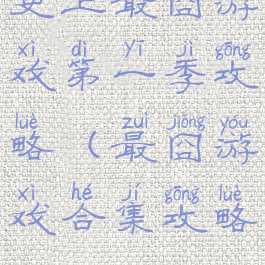 史上最囧游
xì dì yī jì gōng
戏第一季攻
lüè zuì jiǒng yóu
略（最囧游
xì hé jí gōng lüè
戏合集攻略